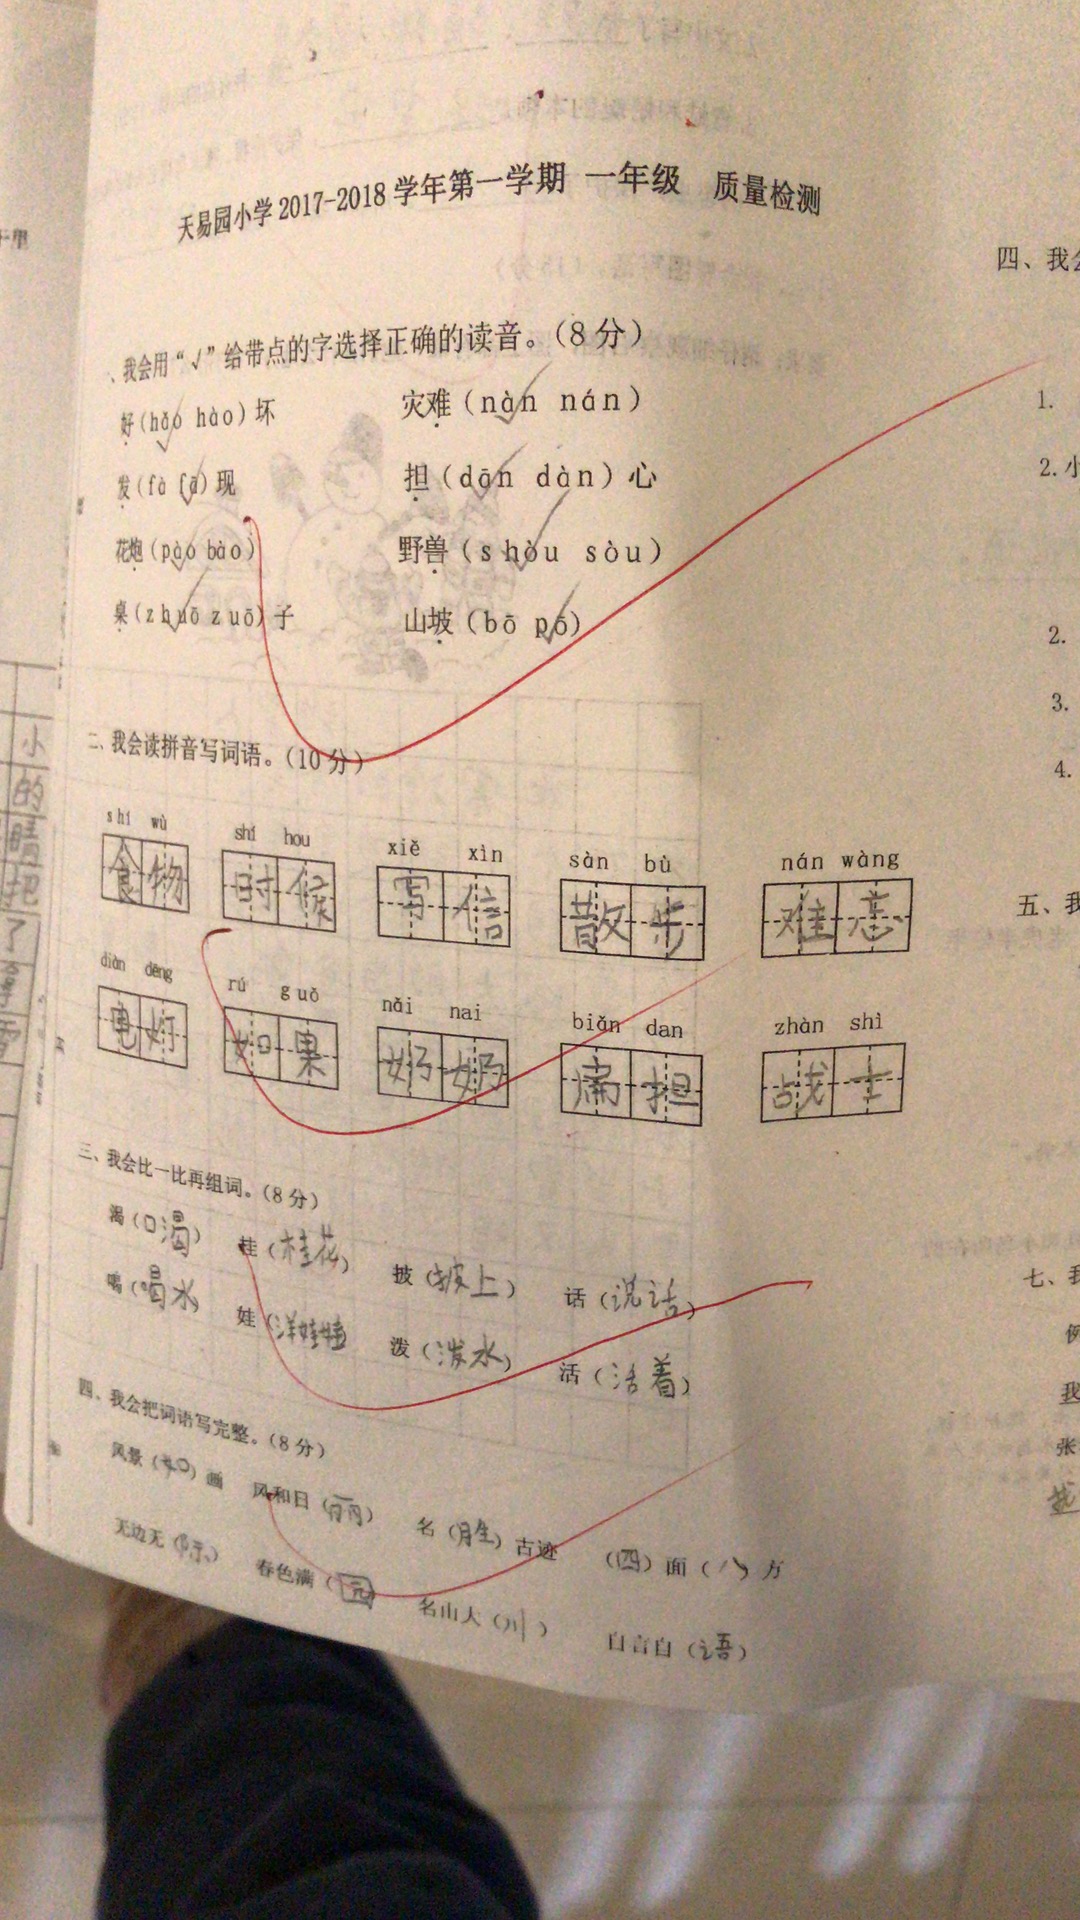 天易园小学2017-2018学年第一学期 一年级 质量检测
、我会用“√”给带点的字选择正确的读音。(8分)
好(hǎo hào)坏 灾难(nàn nán)
发(fà fā)现 担(dān dàn)心
花炮(pào bào) 野兽(shòu sòu)
桌(zhuō zuō)子 山坡(bō pō)
二、我会读拼音写词语。(10分)
shí wù shí hou xiě xìn sàn bù nán wàng
食物 时候 写信 散步 难忘
diàn dēng rú guǒ nǎi nai biǎn dan zhàn shì
电 如果 奶奶 担 战士
三、我会比一比再组词。(8分)
渴(口渴) 桂(桂花) 披(披上) 话(说话)
喝(喝水) 娃(洋娃娃) 泼(泼水) 活(活着)
四、我会把词语写完整。(8分)
风景(如)画 风和日(丽) 名(胜)古迹 (四)面(八)方
无边无(际) 春色满(园) 名山大(川) 自言自(语)
四、我
1.
2.小
2.
3.
4.
五、我
七、我
例
我
张
我
小
的
睛
把
了